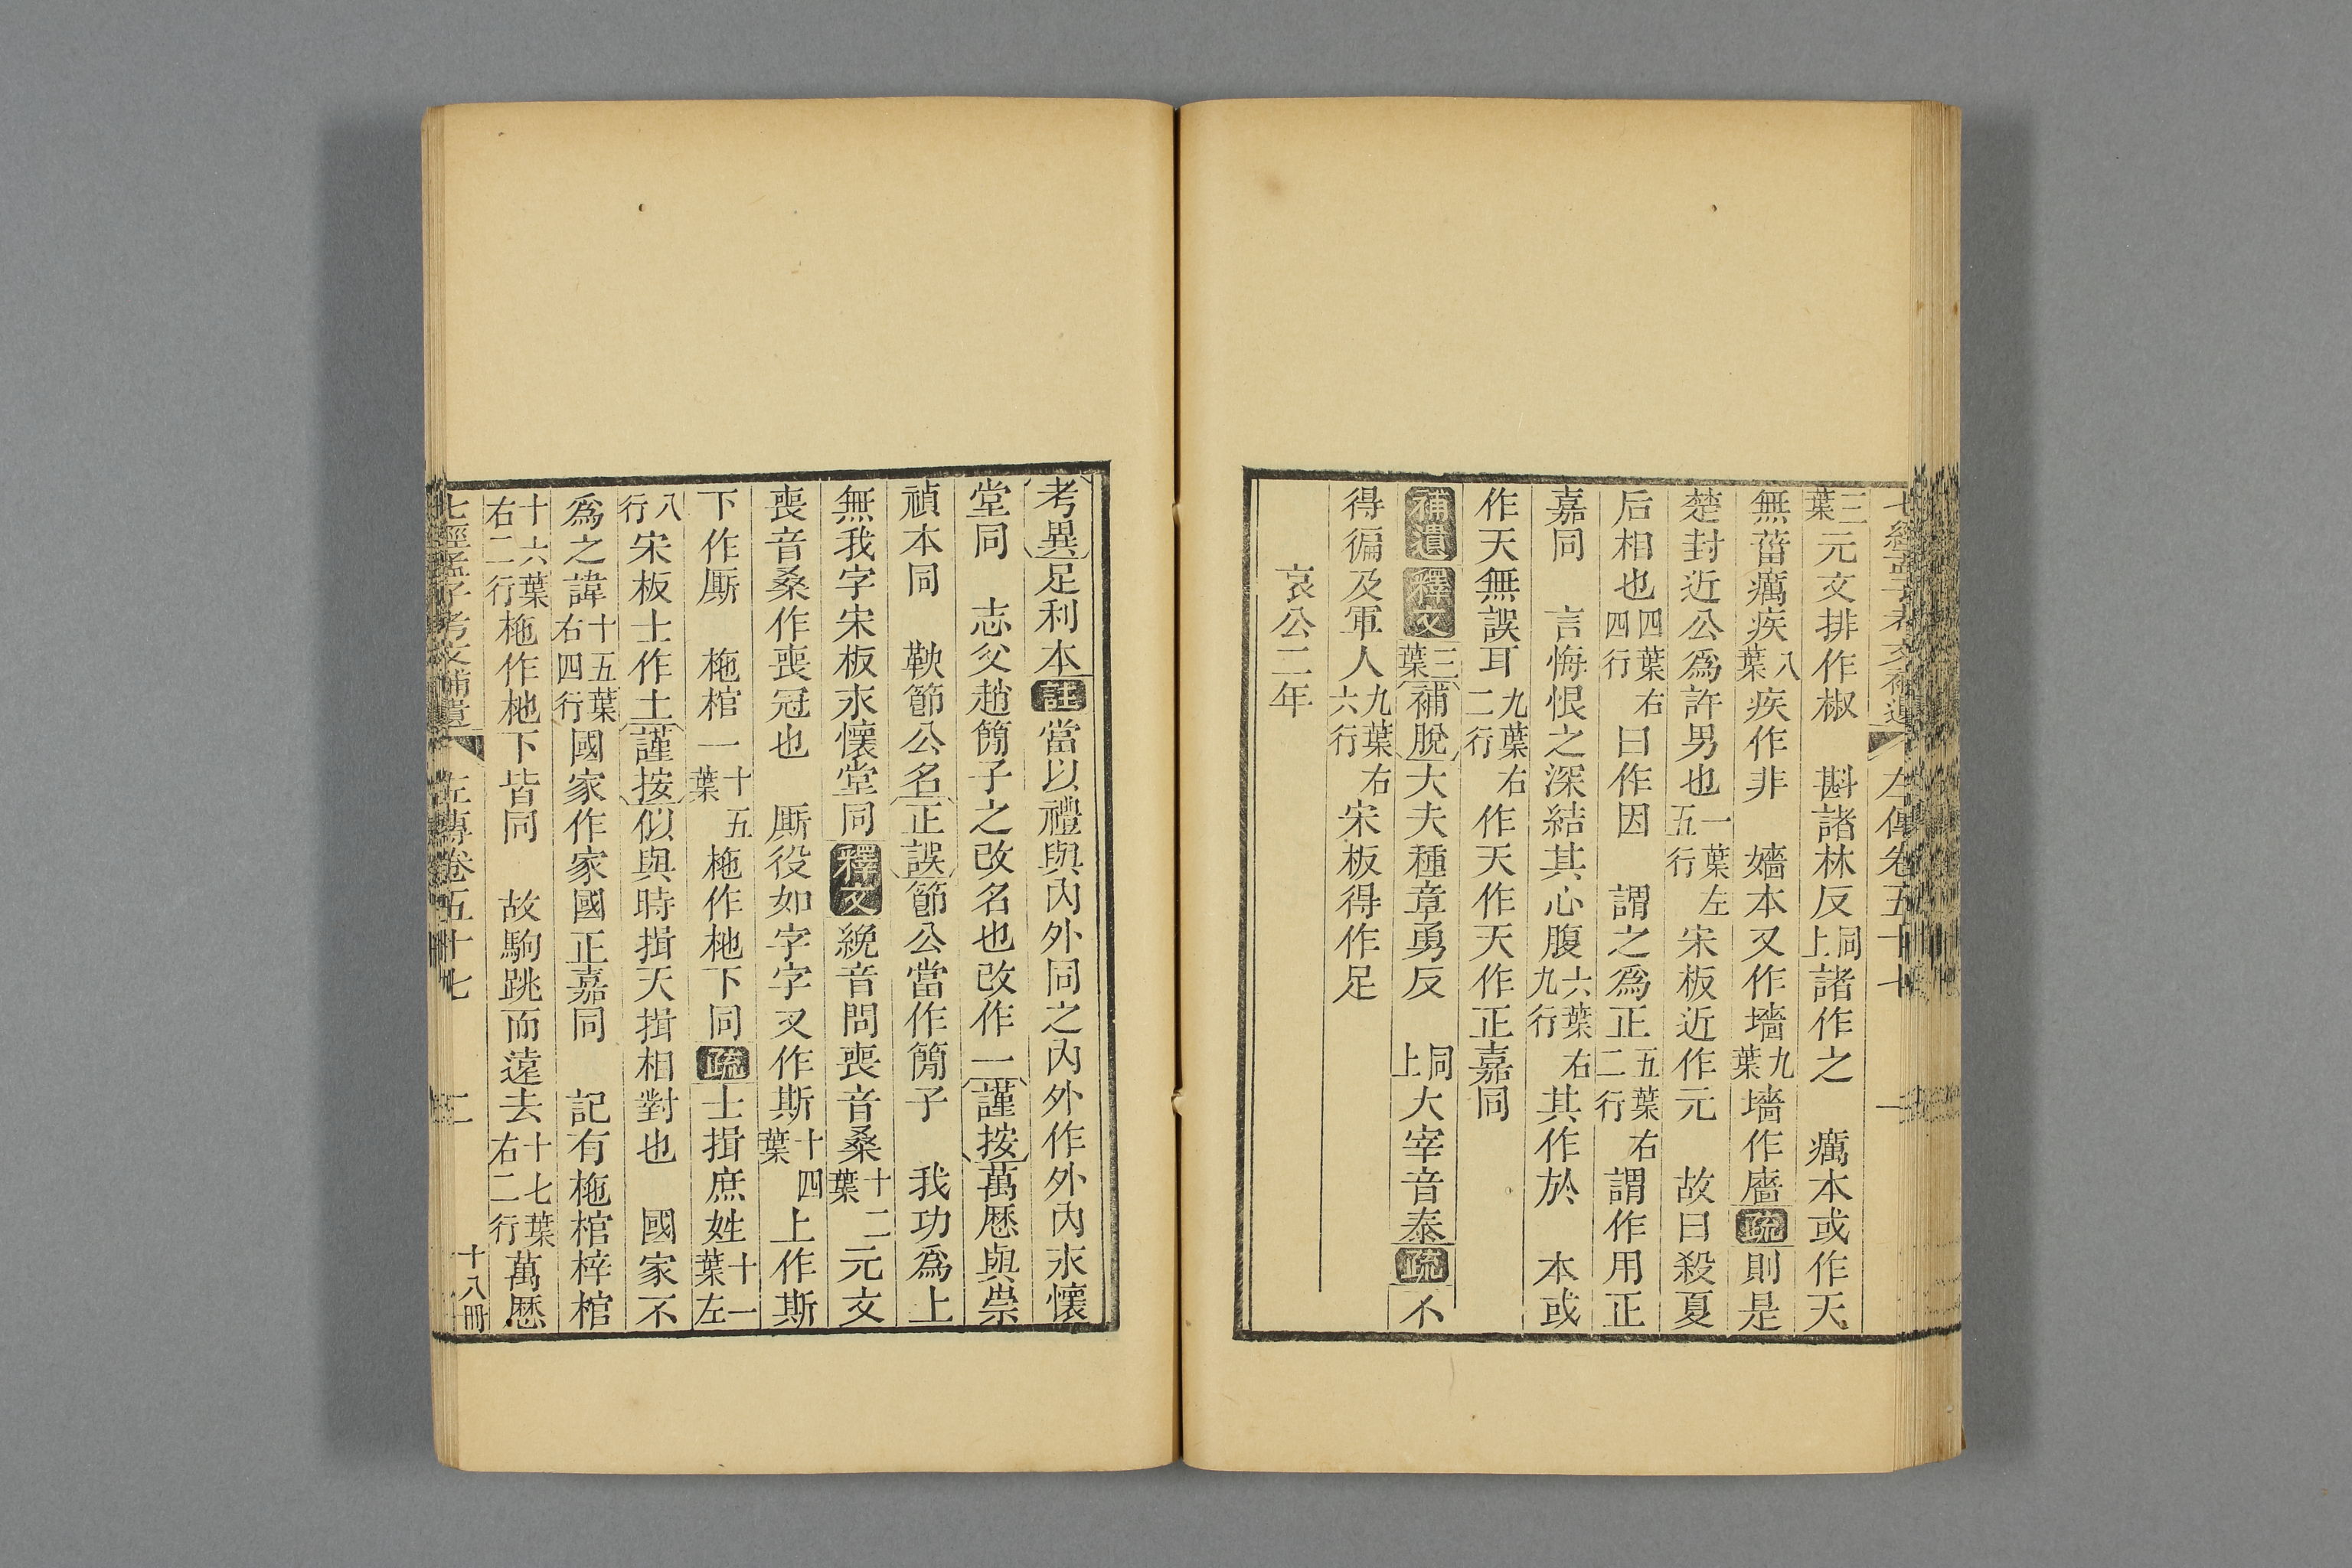 七經孟子考文補遺　左傳卷五十七　一
三葉元文排作椒　斟諸林反同上諸作之　癘本或作天
無菑癘疾八葉疾作非　嬙本又作墻九葉墻作廧疏則是
楚封近公爲許男也一葉左五行宋板近作元　故曰殺夏
后相也四葉右四行曰作因　謂之爲正五葉右二行謂作用正
嘉同　言悔恨之深結其心腹六葉右九行其作於　本或
作天無誤耳九葉右二行作天作天作天作正嘉同
補遺釋文三葉補脫大夫種章勇反　同上大宰音泰疏不
得徧及軍人九葉右六行宋板得作足
哀公二年
考異足利本註當以禮與內外同之內外作外內永懷
堂同　志父趙簡子之改名也改作一謹按萬厯與崇
禎本同　鞅節公名正誤節公當作簡子　我功爲上
無我字宋板永懷堂同釋文絻音問喪音桑十二葉元文
喪音桑作喪冠也　厮役如字字又作斯十四葉上作斯
下作厮　柂棺一十五葉柂作杝下同疏士揖庶姓十一葉左
八行宋板士作土謹按似與時揖天揖相對也　國家不
爲之諱十五葉右四行國家作家國正嘉同　記有柂棺梓棺
十六葉右二行柂作杝下皆同　故駒跳而遠去十七葉右二行萬厯
七經孟子考文補遺　左傳卷五十七　二　十八冊